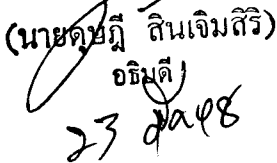 (นายดุษฎี สินเจิมสิริ)
อธิบดี
23 มิย 48